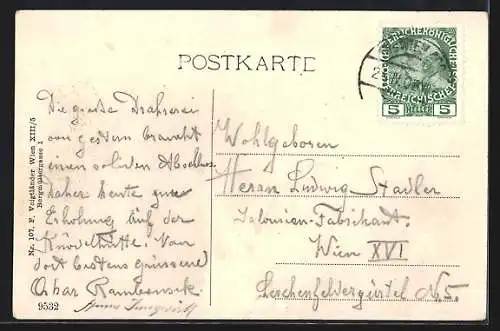 POSTKARTE
5 HELLER 5
Die große Drahrerei
von gestern braucht
einen soliden Abschluss
Daher heute zur
Erholung auf der
Knödelhütte. Von
dort bestens grüssend
Oskar
Wohlgeboren
Herrn Ludwig Stadler
Jalousien-Fabrikant.
Wien XVI
Lerchenfeldergürtel No 5.
Nr. 107. F. Voigtländer Wien XIII/5
Bergmillergasse 1
9532